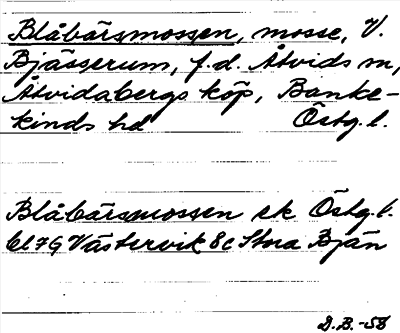 Blåbärsmossen, mosse, V.
Bjässerum, f.d. Åtvids sn,
Åtvidabergs köp, Banke-
kinds hd Östg.l.
Blåbärsmossen ek Östg.l.
7G Västervik 8c Stora Bjän
D.B.-58